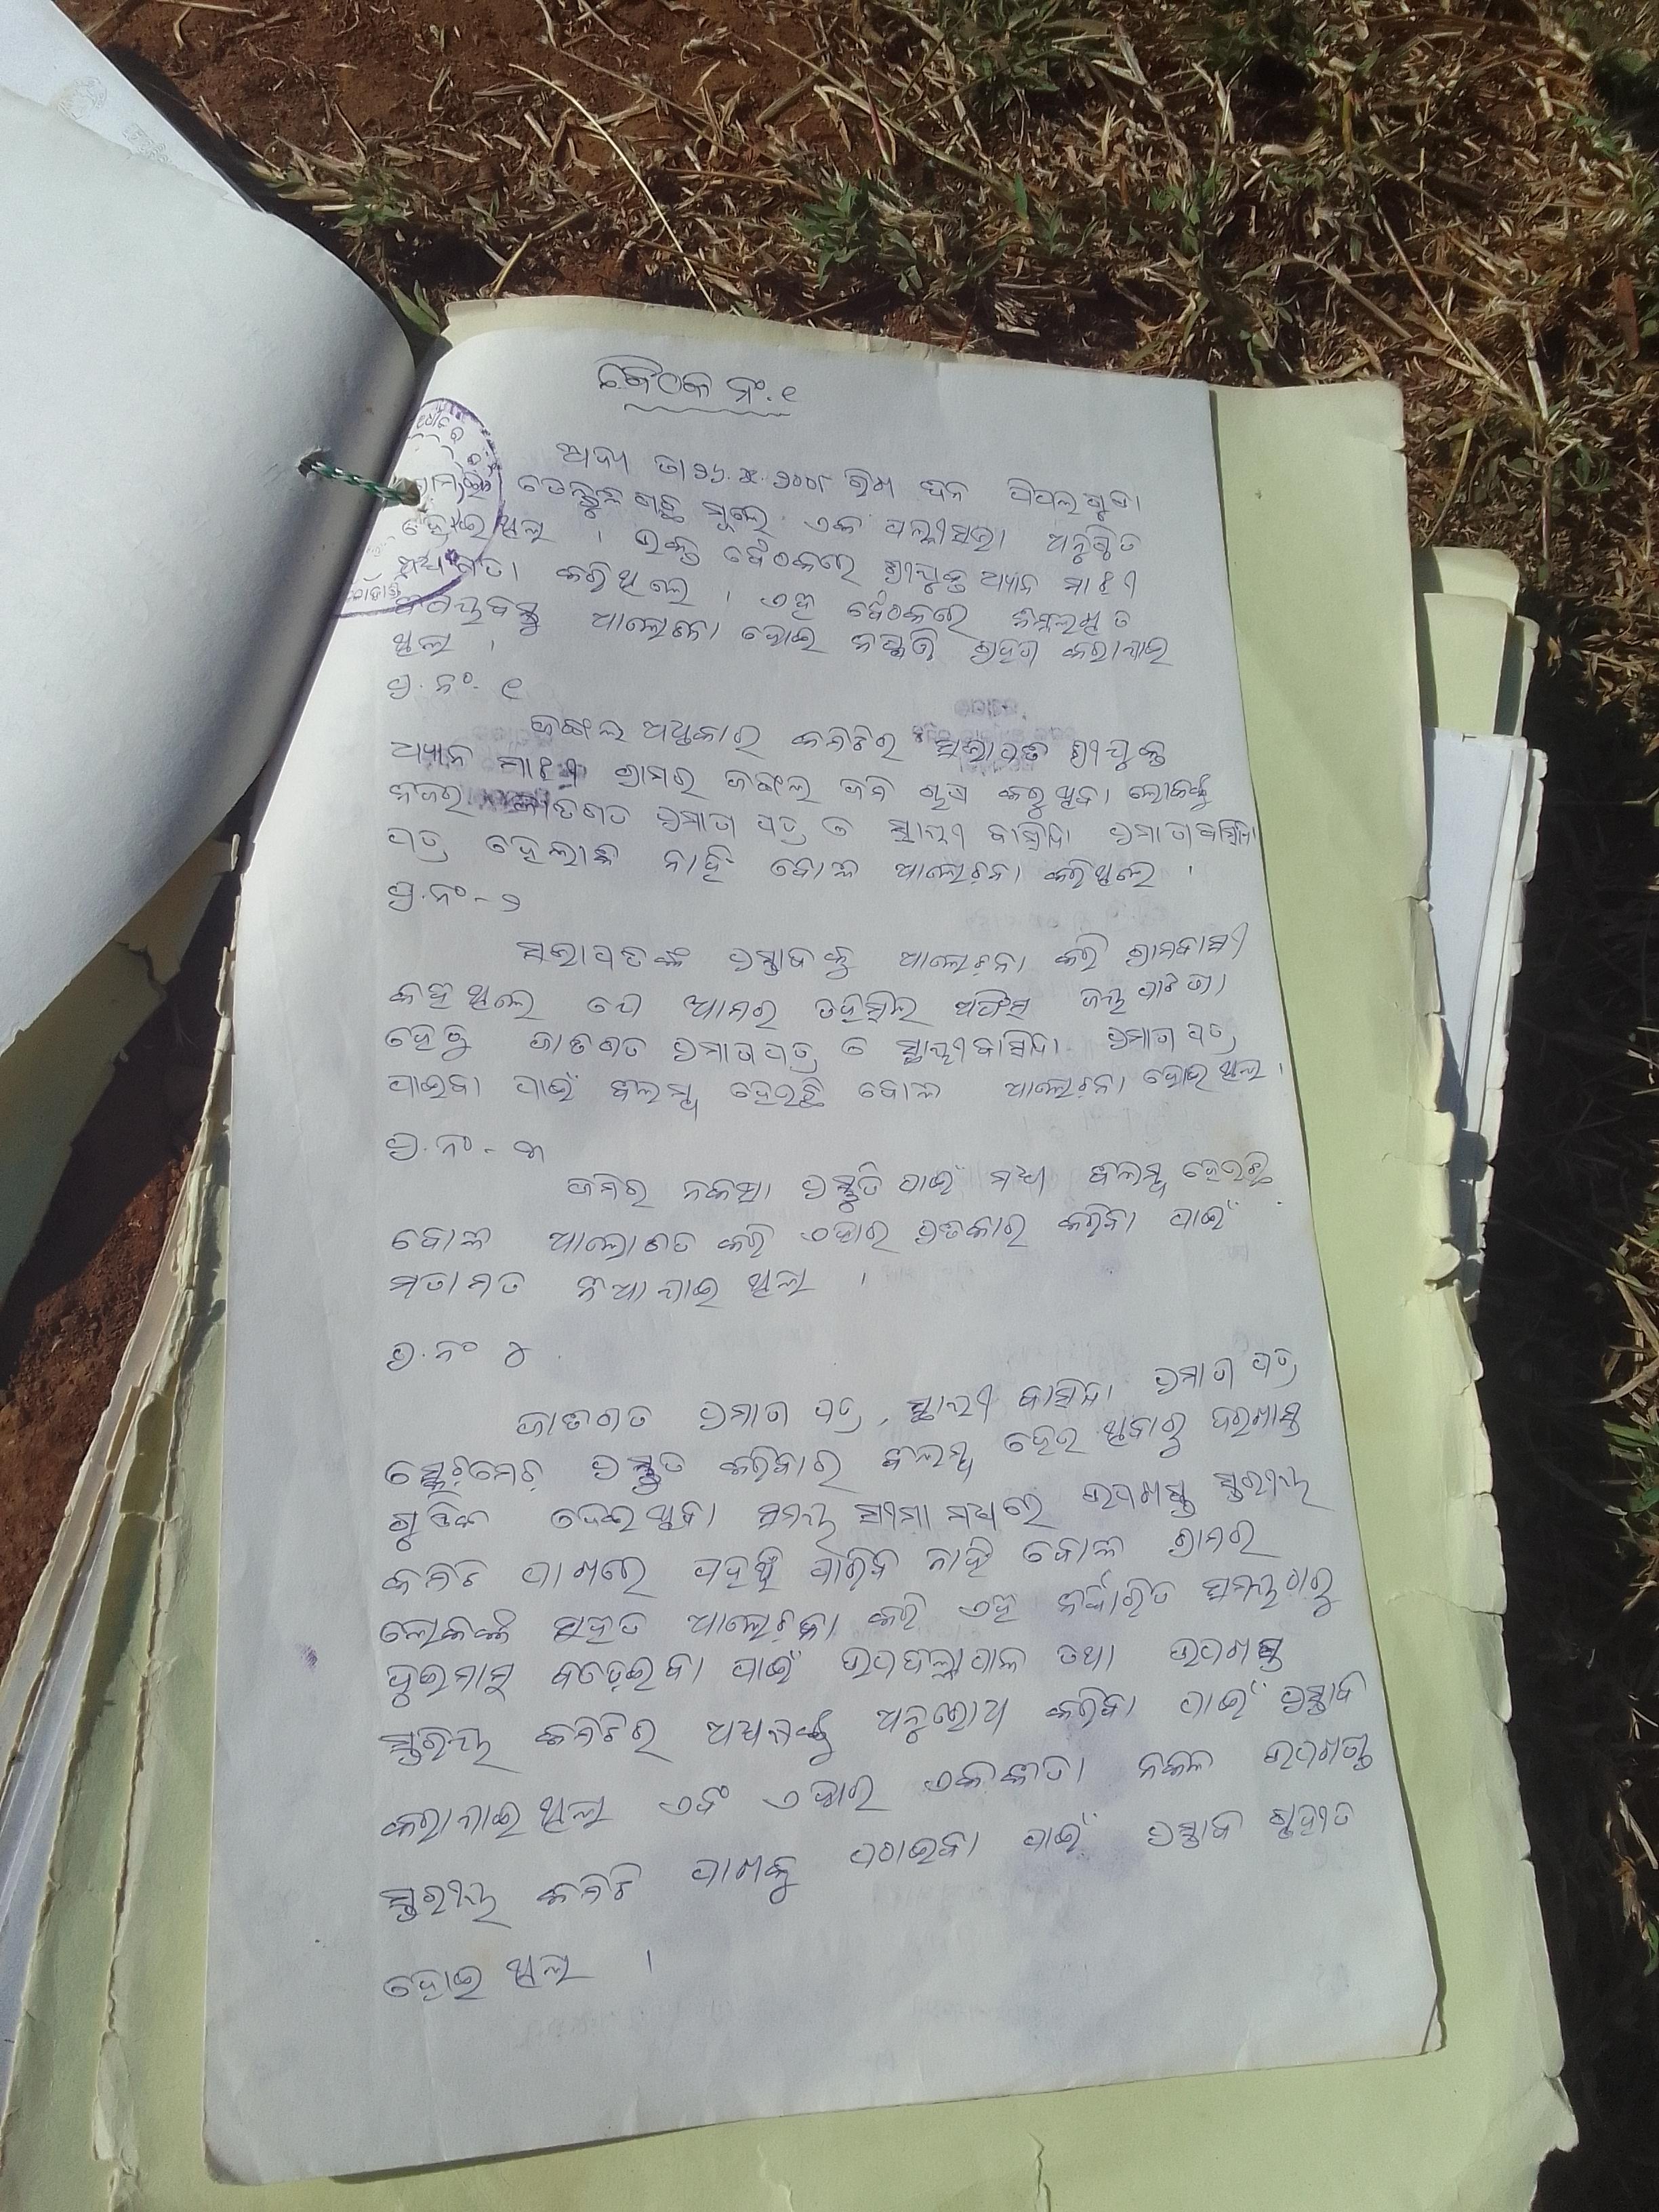 ବୈଠକ ନଂ. ୧
ଆଦ୍ୟ ତା ୨୬.୪.୨୦୦୯ ରିଖ ଦିନ ପିପଲଗୁଡା
ତେନ୍ତୁଳି ଗଛ ମୂଳେ ଏକ ପଲ୍ଲୀସଭା ଅନୁଷ୍ଠିତ
ହୋଇଥିଲା । ଉକ୍ତ ବୈଠକରେ ଶ୍ରୀଯୁକ୍ତ ଅର୍ଯ୍ୟାନ ମାଝୀ
କରିଥିଲେ । ଏହି ବୈଠକରେ ନିମ୍ନଲିଖିତ
ବିଷୟବସ୍ତୁ ଆଲୋଚନା ହୋଇ ନିଷ୍ପତ୍ତି ଗ୍ରହଣ କରାଯାଇ
ଥିଲା ।
ପ୍ର. ନଂ. ୧
ଜଙ୍ଗଲ ଅଧିକାର କମିଟିର ସଭାପତି ଶ୍ରୀଯୁକ୍ତ
ମାଝୀ ଗ୍ରାମର ଜଙ୍ଗଲ ଜମି ଚାଷ କରୁଥିବା ଲୋକଙ୍କୁ
ଜାତିଗତ ପ୍ରମାଣ ପତ୍ର ଓ ସ୍ଥାୟୀ ବାସିନ୍ଦା ପ୍ରମାଣ
ପତ୍ର ହେଲାକି ନାହିଁ ବୋଲି ଆଲୋଚନା କରିଥିଲେ ।
ପ୍ର.ନଂ - ୨
ସଭାପତିଙ୍କ ପ୍ରସ୍ତାବକୁ ଆଲୋଚନା କରି ଗ୍ରାମବାସୀ
କହିଥିଲେ ଯେ ଆମର ତହସିଲ ଅଫିସ ଜୟପାଟଣା
ହେତୁ ଜାତିଗତ ପ୍ରମାଣପତ୍ର ଓ ସ୍ଥାୟୀବାସିନ୍ଦା ପ୍ରମାଣ ପତ୍ର
ପାଇବା ପାଇଁ ବିଳମ୍ବ ହେଉଛି ବୋଲି ଆଲୋଚନା ହୋଇଥିଲା ।
ପ୍ର.ନଂ - ୩
ଜମିର ନକସା ପ୍ରସ୍ତୁତି ପାଇଁ ମଧ୍ୟ ବିଳମ୍ବ ହେଉଛି
ବୋଲି କରି ଏହାର ପ୍ରତିକାର କରିବା ପାଇଁ
ମତାମତ ନିଆଯାଇ ଥିଲା ।
ପ୍ର.ନଂ ୪
ଜାତିଗତ ପ୍ରମାଣ ପତ୍ର, ସ୍ଥାୟୀ ବାସିନ୍ଦା ପ୍ରମାଣ ପତ୍ର
ପ୍ରସ୍ତୁତ କରିବାର ବିଳମ୍ବ ହେଇ ଥିବାରୁ ଦରଖାସ୍ତ
ଗୁଡିକ ଦେଇଥିବା ସମୟ ସୀମା ମଧ୍ୟରେ ଉପଖଣ୍ଡ ସ୍ତରୀୟ
କମିଟି ପାଖରେ ପହଞ୍ଚି ପାରିବ ନାହିଁ ବୋଲି ଗ୍ରାମର
ଲୋକଙ୍କ ସହିତ ଆଲୋଚନା କରି ଏହି ନିର୍ଦ୍ଧାରିତ ସମୟଠାରୁ
ଦୁଇମାସ ବଢ଼େଇବା ପାଇଁ ଉପଜିଲ୍ଲାପାଳ ତଥା ଉପଖଣ୍ଡ
ସ୍ତରୀୟ କମିଟିର ଅଧ୍ୟକ୍ଷଙ୍କୁ ଅନୁରୋଧ କରିବା ପାଇଁ ପ୍ରସ୍ତାବ
କରାଯାଇଥିଲା ଏବଂ ଏହାର ନକଲ ଉପଖଣ୍ଡ
ସ୍ତରୀୟ କମିଟି ପାଖକୁ ପଠାଇବା ପାଇଁ ପ୍ରସ୍ତାବ ଗୃହୀତ
ହୋଇ ଥିଲା ।